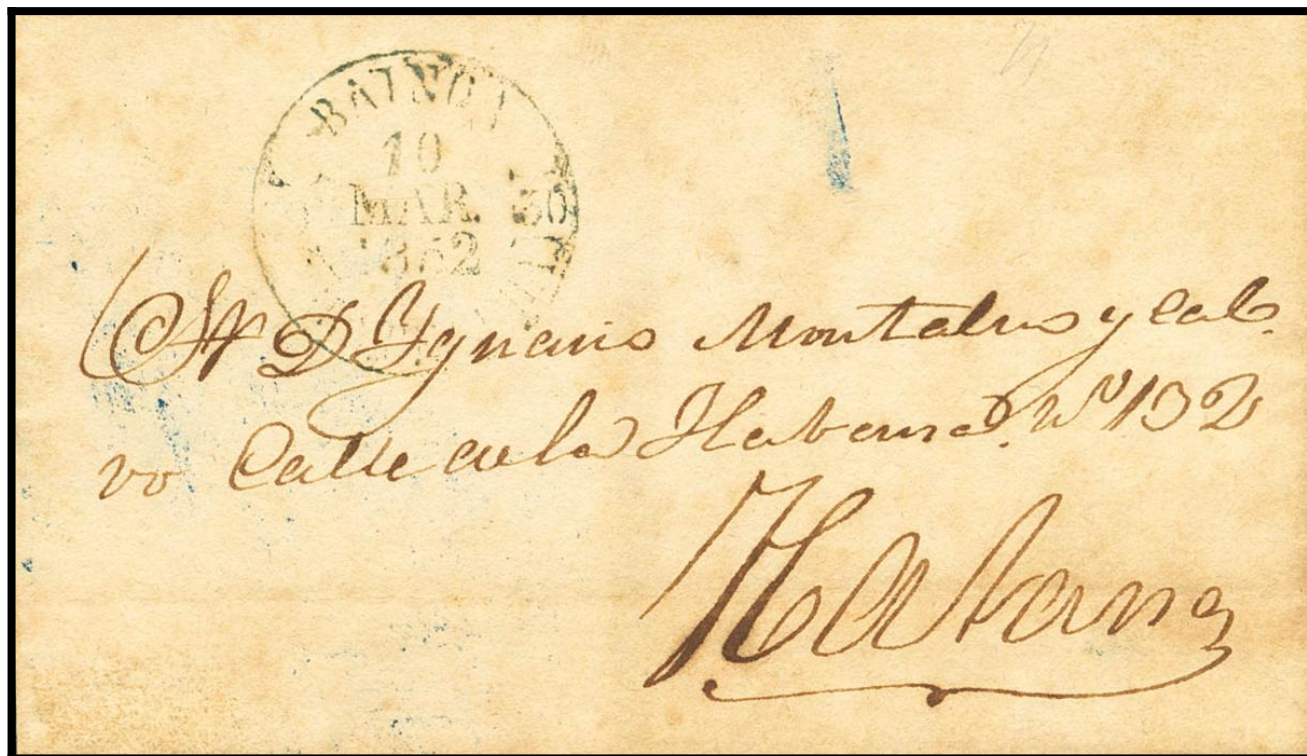 BAINOA
10
MAR.
1852
30
Sr D Ygnacio Montalvo y Cal
vo Calle de la Habana. No 132
Habana